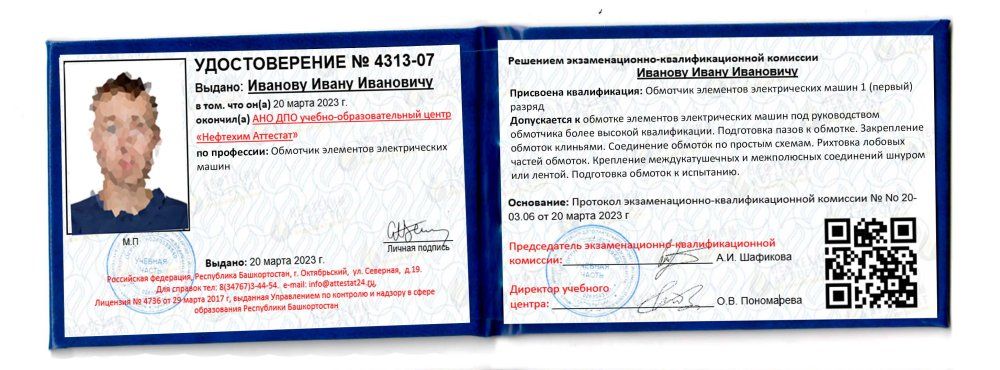 УДОСТОВЕРЕНИЕ № 4313-07
Выдано: Иванову Ивану Ивановичу
в том. что он(а) 20 марта 2023 г.
окончил(а) АНО ДПО учебно-образовательный центр
«Нефтехим Аттестат»
по профессии: Обмотчик элементов электрических
машин
М.П
Личная подпись
УЧЕБНАЯ
ЧАСТЬ
Выдано: 20 марта 2023 г.
Российская федерация, Республика Башкортостан, г. Октябрьский, ул. Северная, д.19.
Для справок тел: 8(34767)3-44-54. e-mail: info@attestat24.ru,
Лицензия № 4736 от 29 марта 2017 г, выданная Управлением по контролю и надзору в сфере
образования Республики Башкортостан
Решением экзаменационно-квалификационной комиссии
Иванову Ивану Ивановичу
Присвоена квалификация: Обмотчик элементов электрических машин 1 (первый)
разряд
Допускается к обмотке элементов электрических машин под руководством
обмотчика более высокой квалификации. Подготовка пазов к обмотке. Закрепление
обмоток клиньями. Соединение обмоток по простым схемам. Рихтовка лобовых
частей обмоток. Крепление междукатушечных и межполюсных соединений шнуром
или лентой. Подготовка обмоток к испытанию.
Основание: Протокол экзаменационно-квалификационной комиссии № No 20-
03.06 от 20 марта 2023 г
Председатель экзаменационно-квалификационной
комиссии: А.И. Шафикова
УЧЕБНАЯ
ЧАСТЬ
Директор учебного
центра: О.В. Пономарева